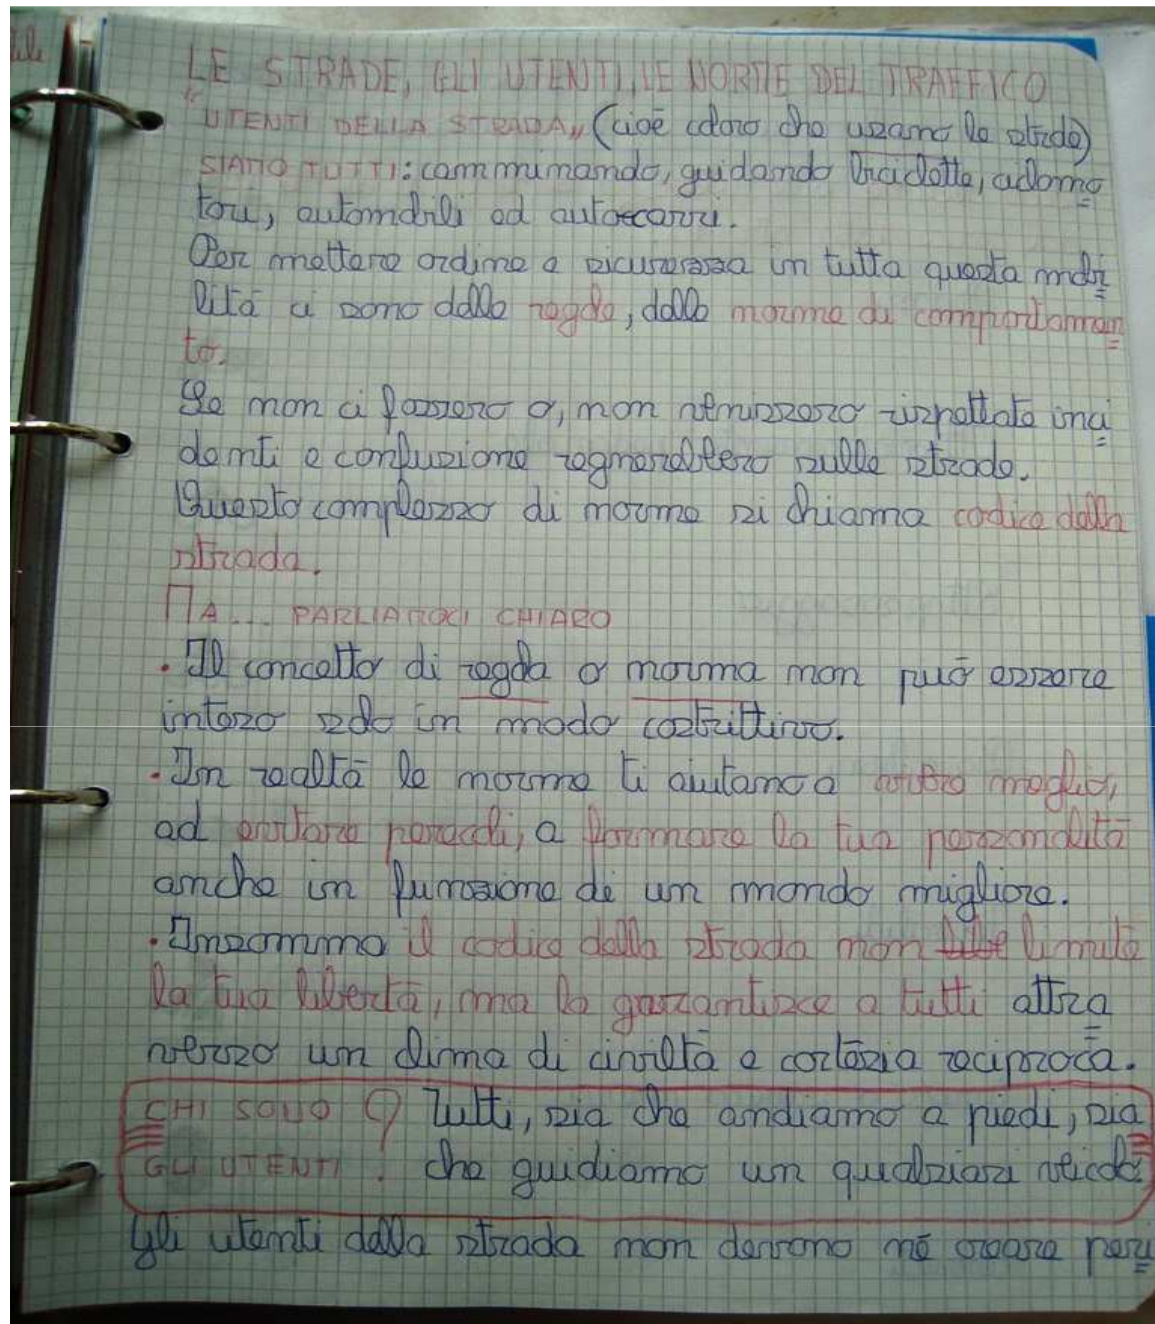 LE STRADE, GLI UTENTI, LE NORME DEL TRAFFICO
"UTENTI DELLA STRADA" (cioè coloro che usano le strade)
SIAMO TUTTI: camminando, guidando biciclette, ciclomo
tori, automobili ed autocarri.
Per mettere ordine e sicurezza in tutta questa mobi
lità ci sono delle regole, delle norme di comportamen
to.
Se non ci fossero o, non venissero rispettate inci
denti e confusione regnerebbero sulle strade.
Questo complesso di norme si chiama codice della
strada.
MA... PARLIAMOCI CHIARO
• Il concetto di regola o norma non può essere
inteso solo in modo costrittivo.
• In realtà le norme ti aiutano a vivere meglio,
ad evitare pericoli, a formare la tua personalità
anche in funzione di un mondo migliore.
• Insomma il codice della strada non limita
la tua libertà, ma la garantisce a tutti attra
verso un clima di civiltà e cortesia reciproca.
CHI SONO GLI UTENTI? Tutti, sia che andiamo a piedi, sia
che guidiamo un qualsiasi veicolo
Gli utenti della strada non devono né creare peri